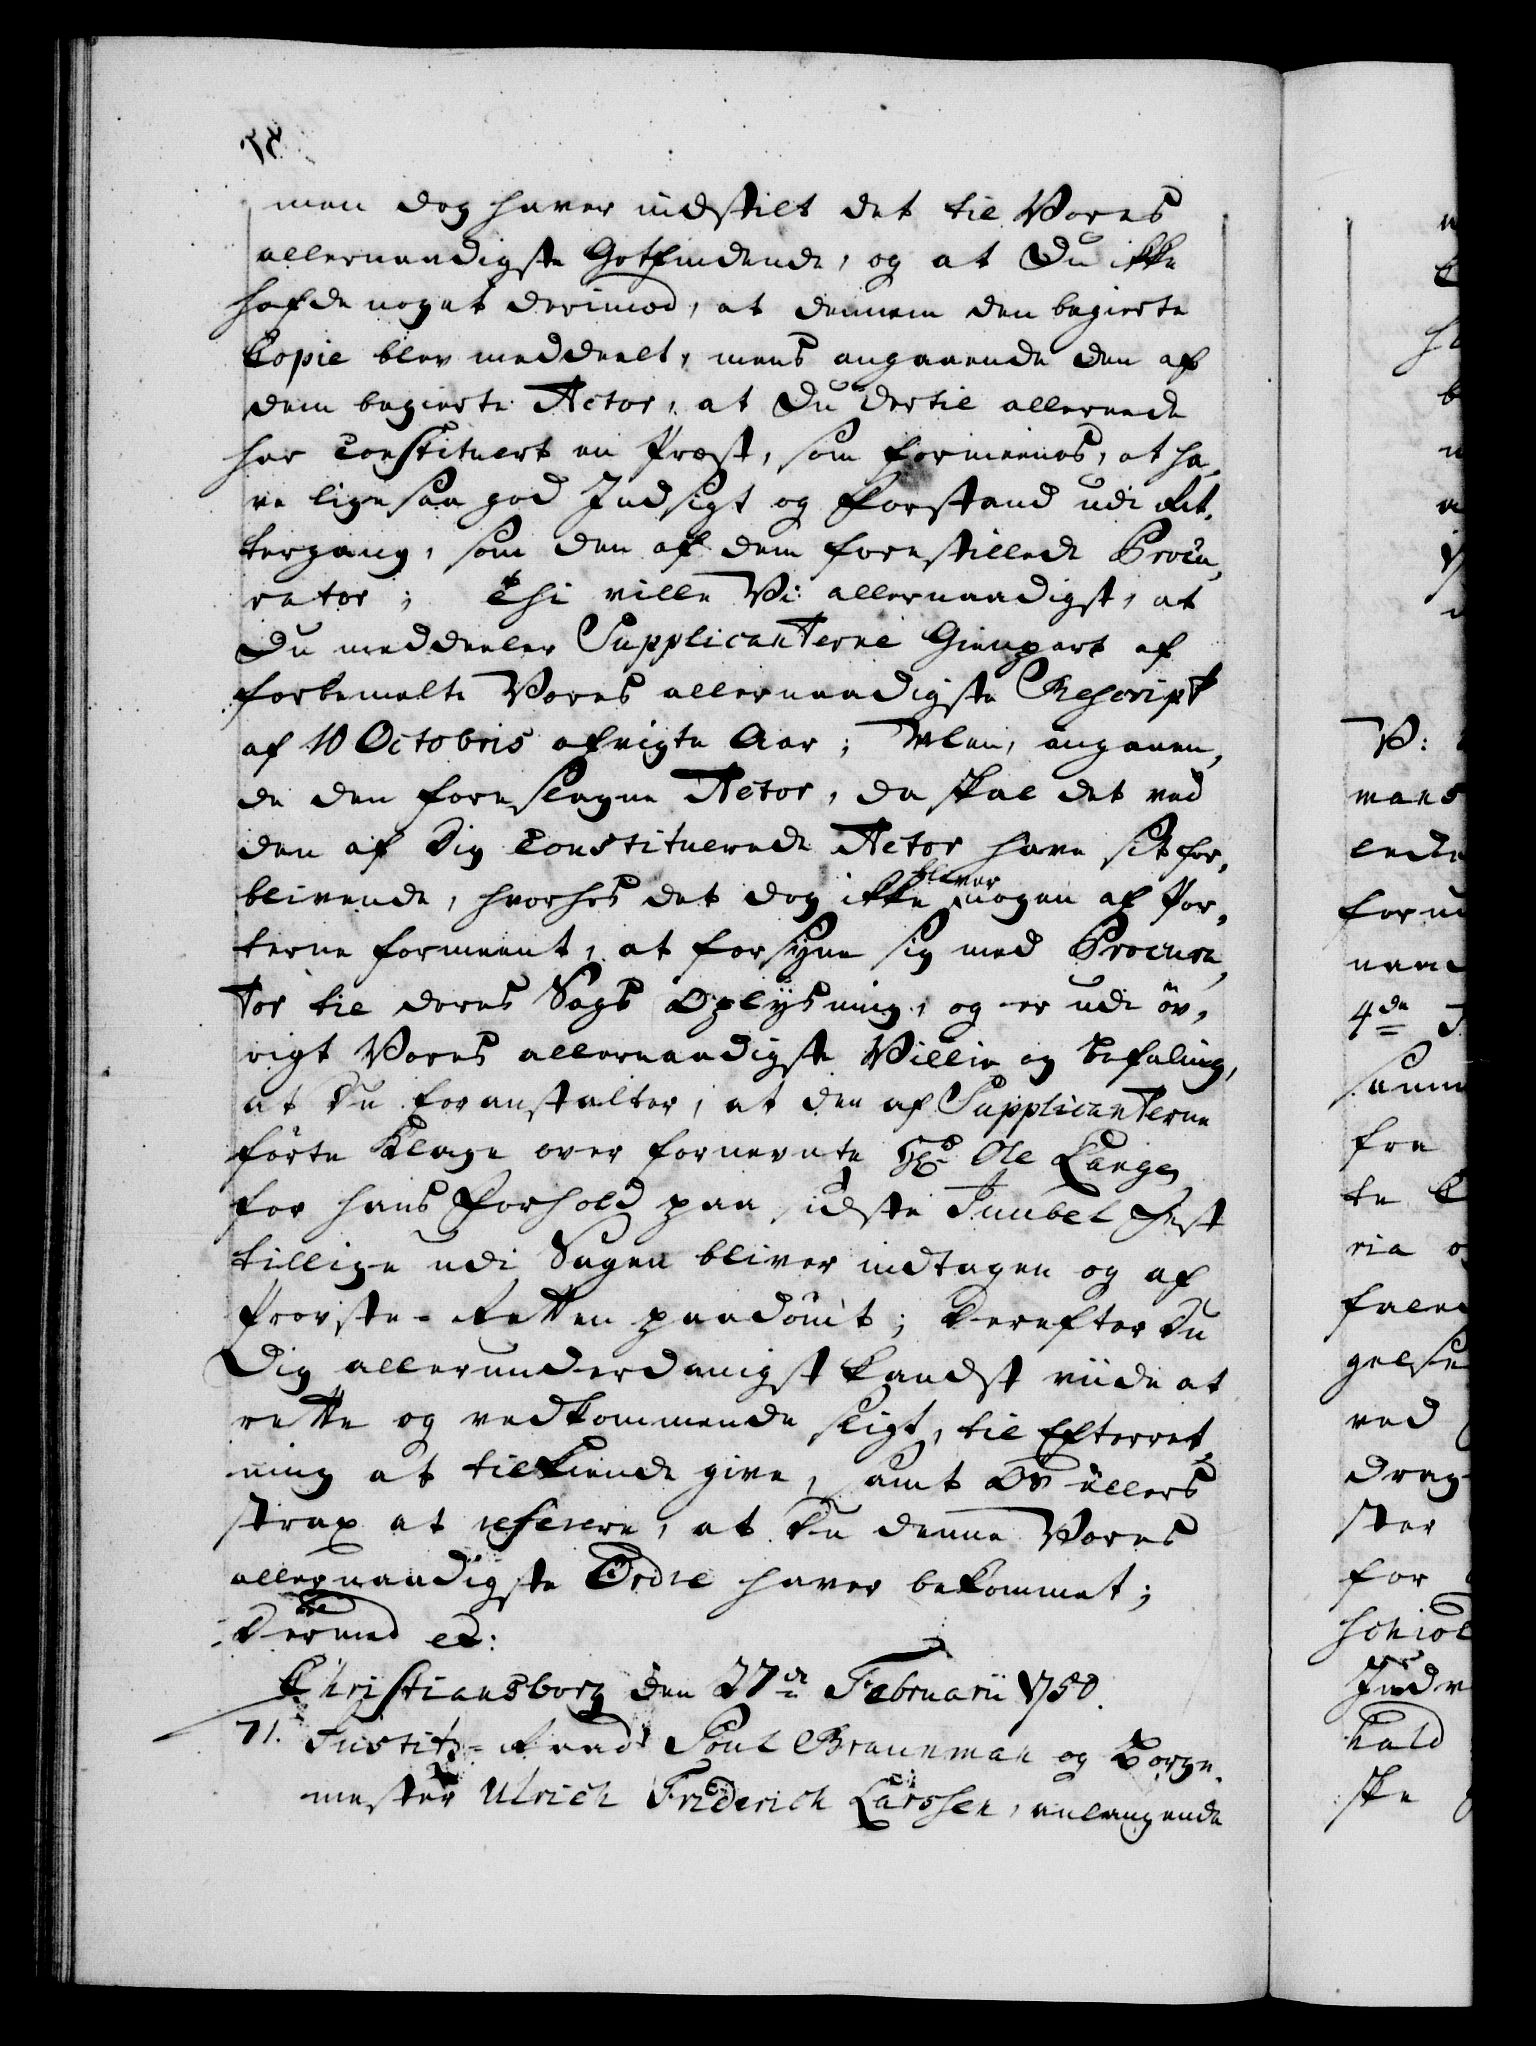 men dog haver indstilt det til Vores
allernaadigste Gotfindende, og at Du ikke
hafde noget derimod, at dennem den begierte
Copie blev meddeelt, mens angaaende den af
dem begierte Actor, at Du dertil allereede
har Constituert en Præst, som formeenes, at ha,
ve ligesaa god Indsigt og Forstand udi Ret,
tergang, som den af dem forestillede Procu,
rator; Thi ville Vi allernaadigst, at
Du meddeeler Supplicanterne Gienpart af
forbemelte Vores allernaadigste Rescript
af 10 Octobris afvigte Aar; Men, angaaen,
de den foreslagne Actor, da skal det ved
den af Dig Constituerede Actor have sit for,
blivende, hvorhos det dog ikke bliver nogen af Par,
terne formeent, at forsyne sig med Procura,
tor til deres Sags Oplysning, og er udi öv,
rigt Vores allernaadigste Villie og befaling,
at Du foranstalter, at den af Supplicanterne
förte Klage over fornevnte Hr Ole Lange,
for hans Forhold paa sidste Juubel Fest
tillige udi Sagen bliver indtagen og af
Provste-Retten paadömt; Derefter Du
Dig allerunderdanigst kandst viide at
rette og vedkommende sligt, til Efterret,
ning at tilkiende give, samt Os ellers
strax at referere, at Du denne Vores
allernaadigste Ordre haver bekommet;
Dermed etc:
Christiansborg den 27de Februarii 1750.
71. Justitz-Raad Poul Braunman og Borge,
mester Ulrich Friderich Larssen, anlangende